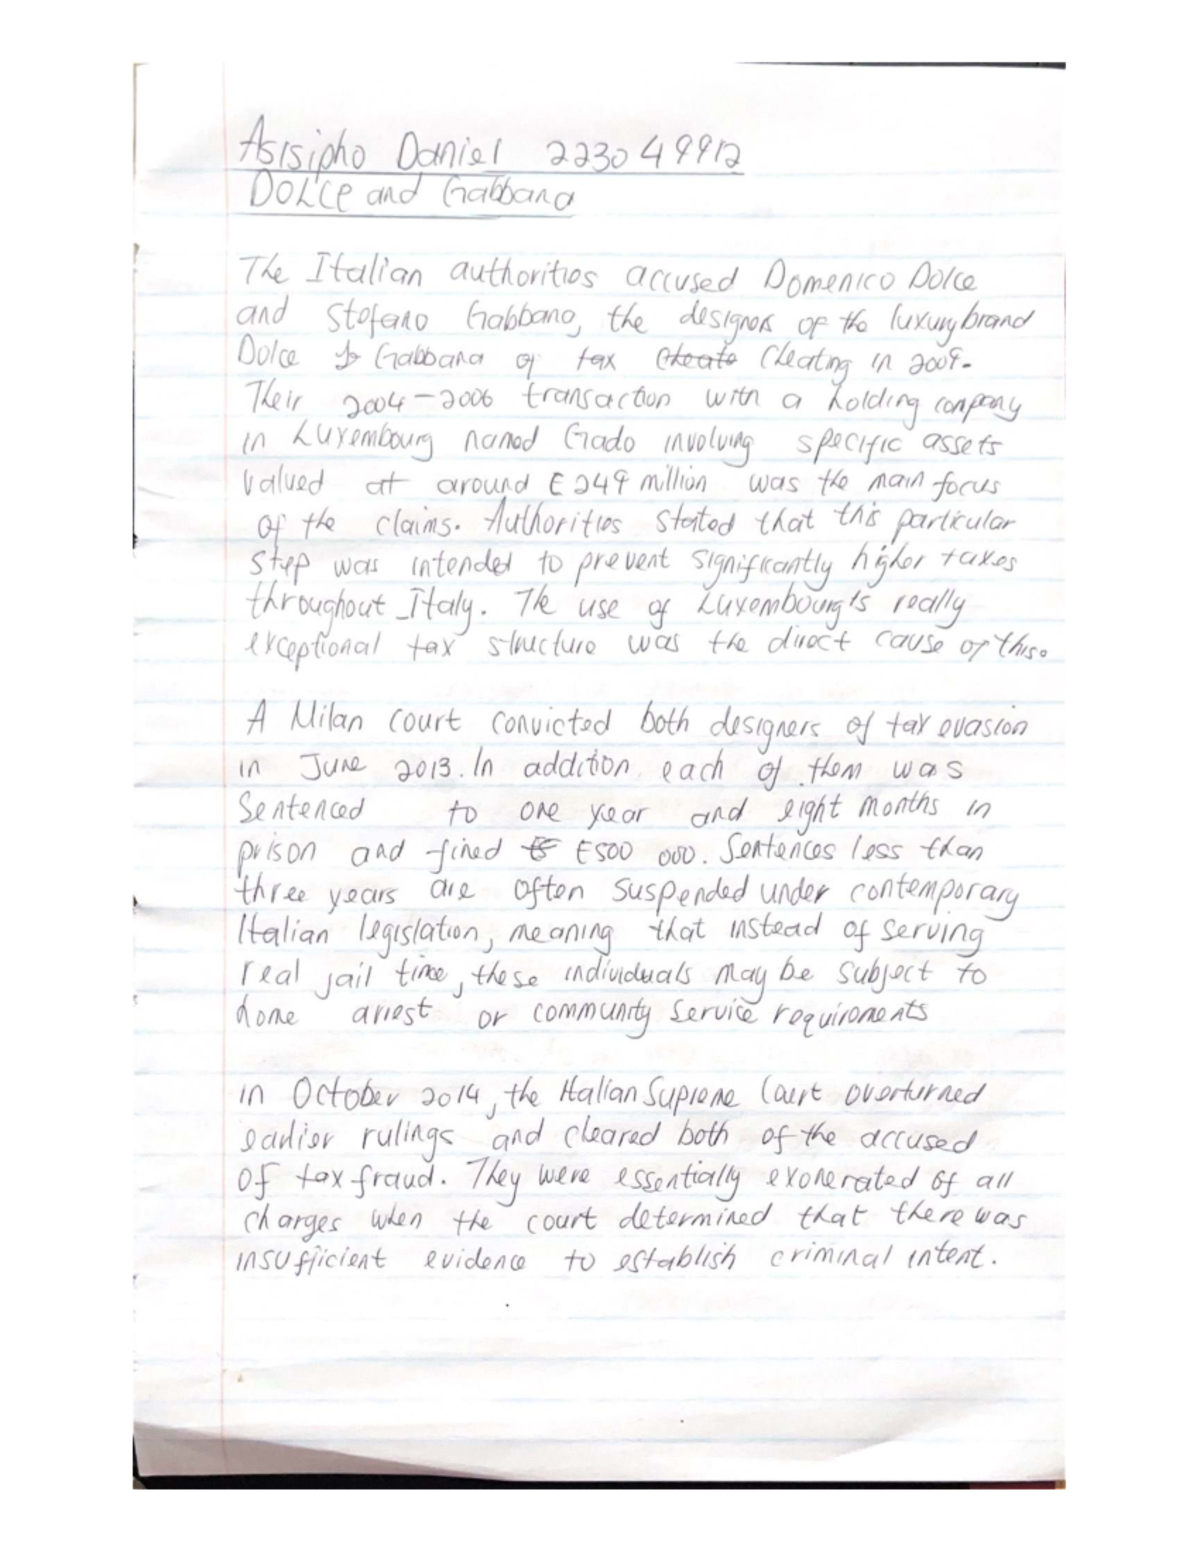 Asisipho Daniel 223049912
DOLCE and Gabbana
The Italian authorities accused Domenico Dolce
and Stefano Gabbano, the designers of the luxury brand
Dolce & Gabbana of tax cheats cheating in 2009.
Their 2004-2006 transaction with a holding company
in Luxembourg named Gado involving specific assets
valued at around £249 million was the main focus
of the claims. Authorities stated that this particular
step was intended to prevent significantly higher taxes
throughout Italy. The use of Luxembourg's really
exceptional tax structure was the direct cause of this.
A Milan court convicted both designers of tax evasion
in June 2013. In addition, each of them was
sentenced to one year and eight months in
prison and fined £500 000. Sentences less than
three years are often suspended under contemporary
Italian legislation, meaning that instead of serving
real jail time, these individuals may be subject to
home arrest or community service requirements
in October 2014, the Italian Supreme Court overturned
earlier rulings and cleared both of the accused
of tax fraud. They were essentially exonerated of all
charges when the court determined that there was
insufficient evidence to establish criminal intent.